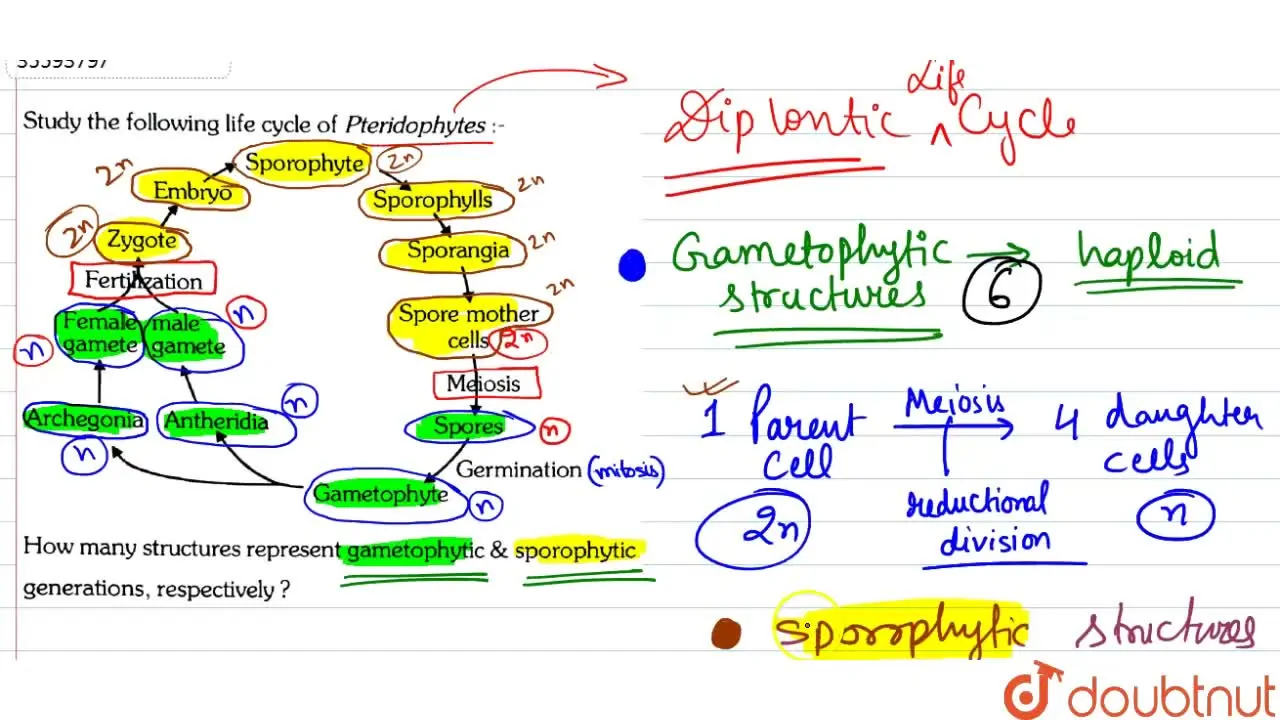 35593797
Study the following life cycle of Pteridophytes :-
Diplontic Life Cycle
Sporophyte 2n
2n Embryo
Sporophylls 2n
2n Zygote
Sporangia 2n
Fertilization
Gametophytic structures → haploid
6
Female gamete n
male gamete n
Spore mother cells 2n
2n
Meiosis
Archegonia n
Antheridia n
Spores n
1 Parent cell Meiosis 4 daughter cells
2n reductional division n
Germination (mitosis)
Gametophyte n
How many structures represent gametophytic & sporophytic
generations, respectively ?
Sporophytic structures
doubtnut